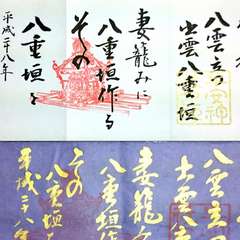 八雲立つ
出雲八重垣
妻籠みに
八重垣作る
その
八重垣を
平成二十八年
八雲立つ
出雲八
妻籠み
八重垣作
その
八重垣を
平成二十八